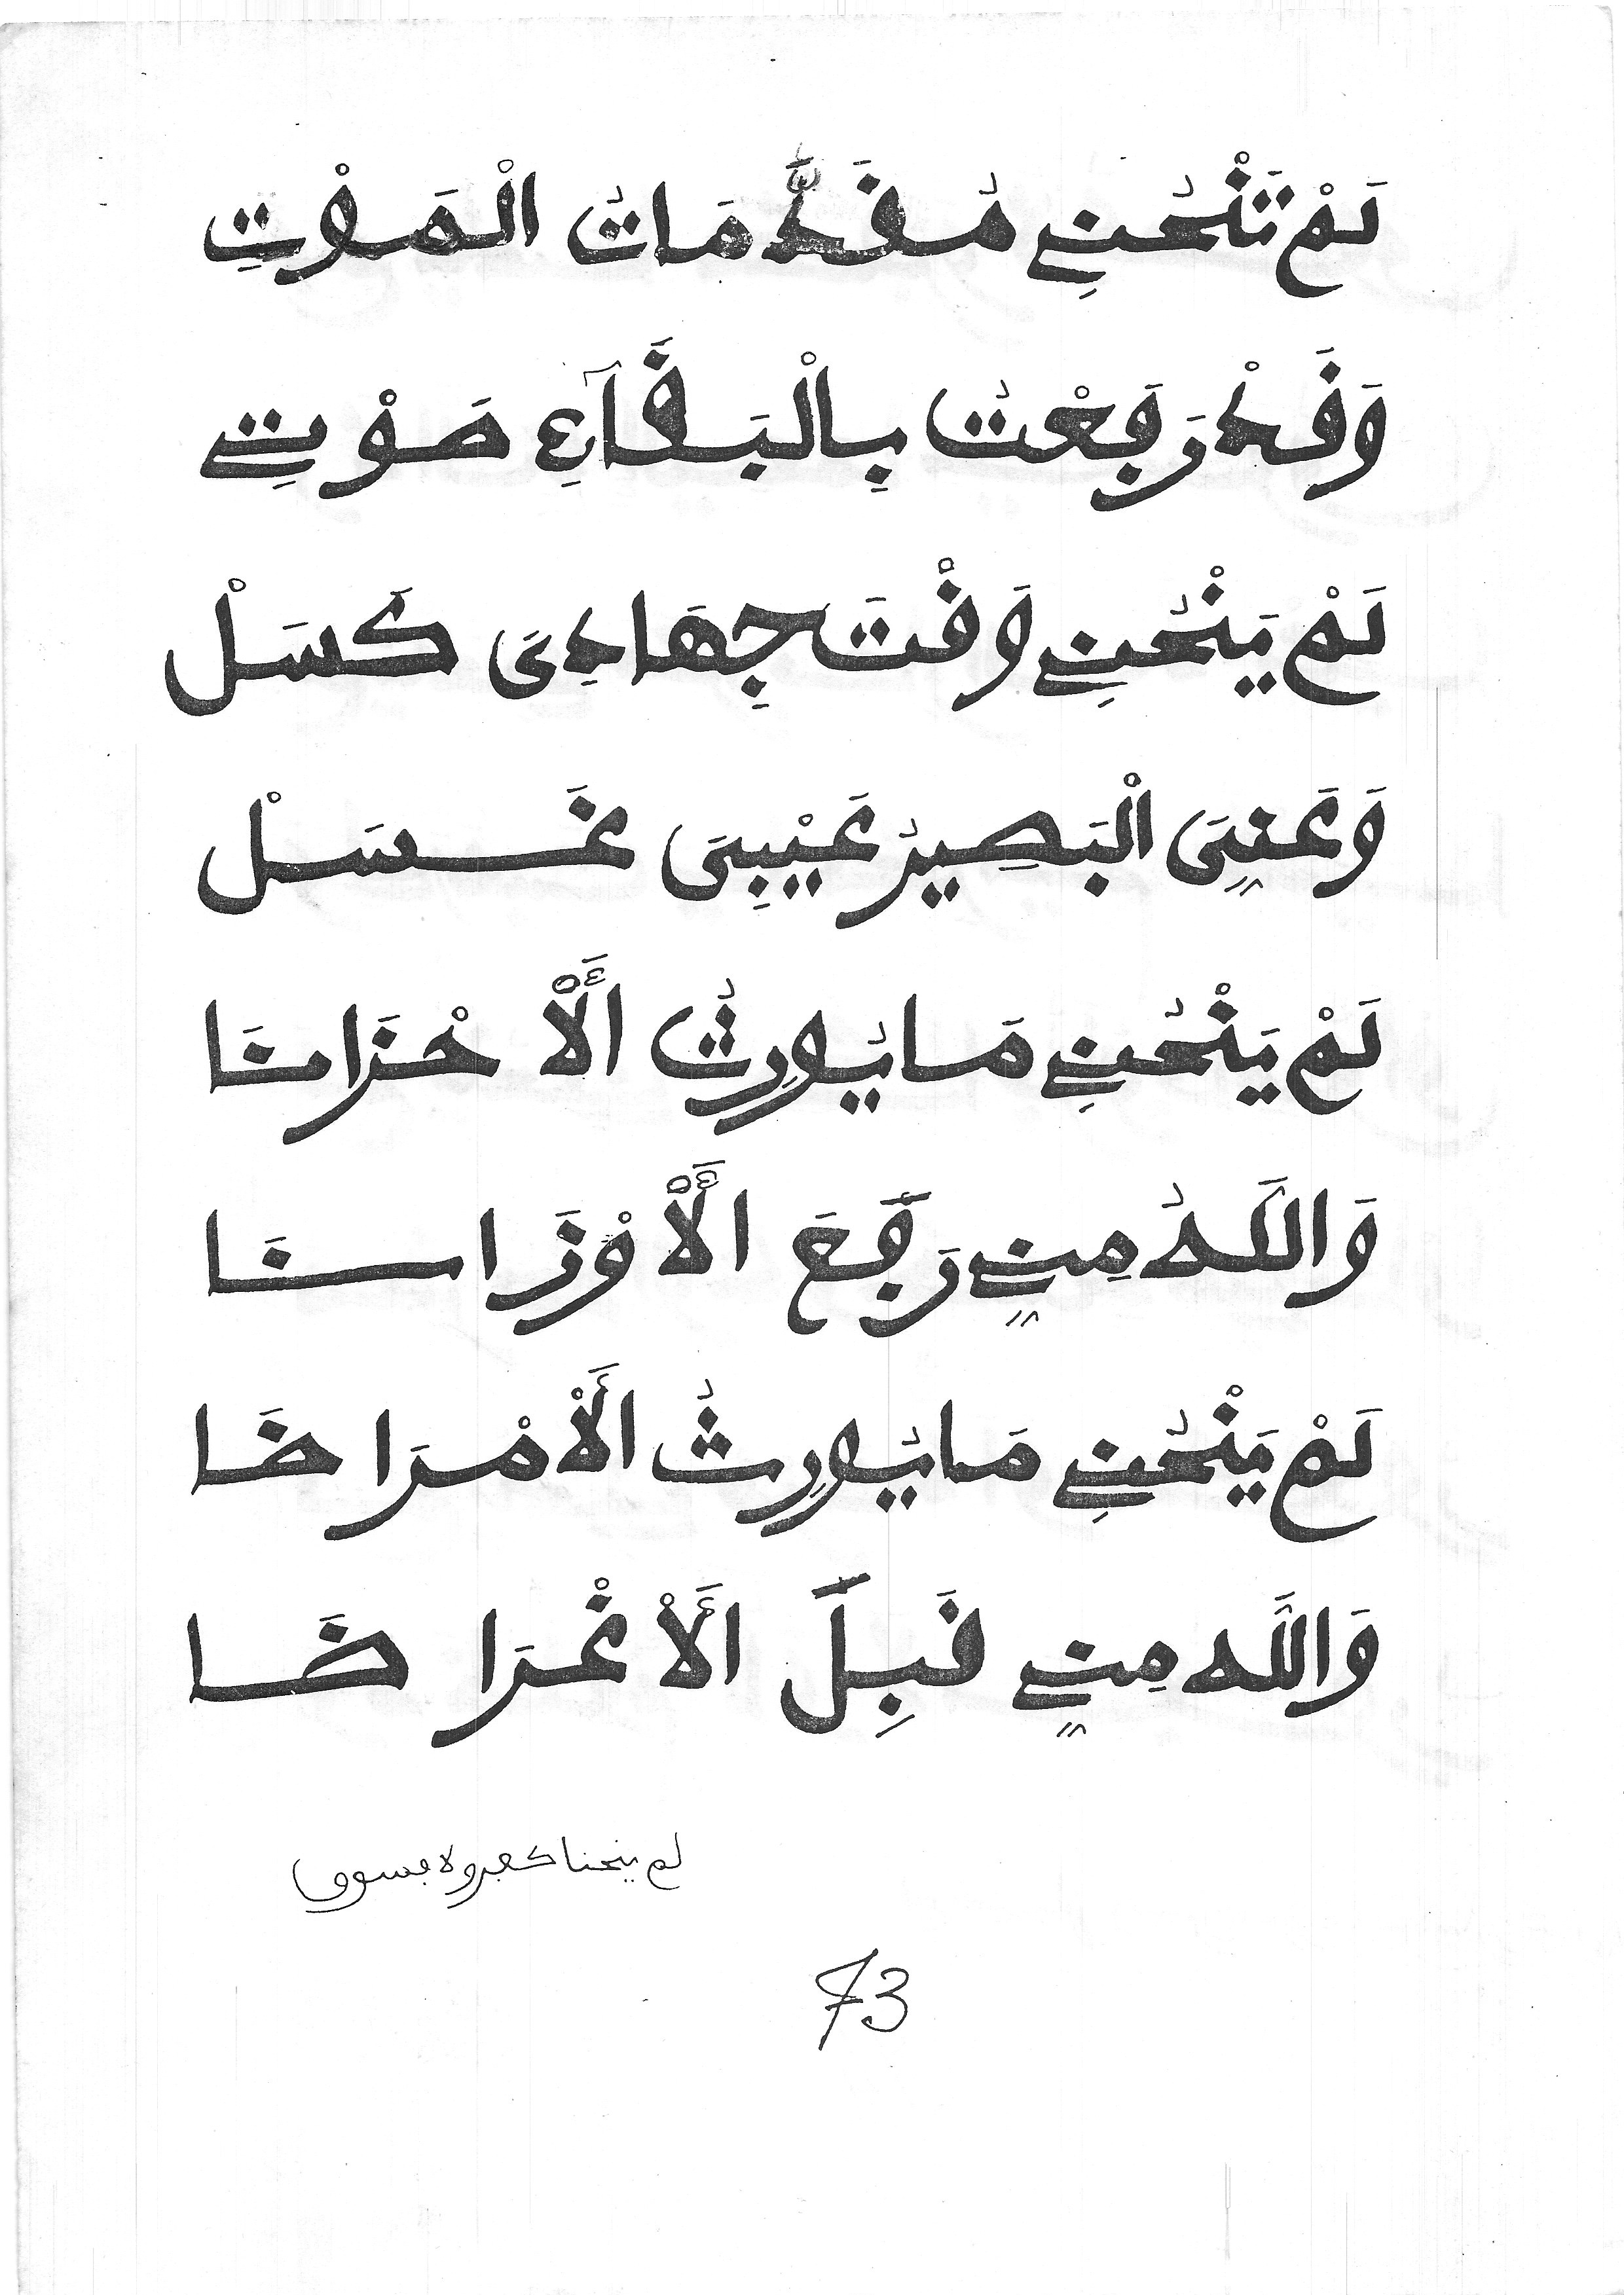 لَمْ تَنْحُنِي مُقَدَّمَاتُ الْمَوْتِ
وَقَدْ رَفَعْتُ بِالْبَقَآءِ صَوْتِي
لَمْ يَنْحُنِي وَقْتَ جِهَادِىَ كَسَلْ
وَعَنِّىَ الْبَصِيرُ عَيْبِىَ غَسَلْ
لَمْ يَنْحُنِي مَا يُورِثُ الْأَحْزَانَا
وَاللَّهُ مِنِّي رَفَّعَ الْأَوْزَانَا
لَمْ يَنْحُنِي مَا يُورِثُ الْأَمْرَاضَا
وَاللَّه مِنِّي قَبِلَ الْأَغْرَاضَا
لم ينحنا كفر ولا فسوق
73